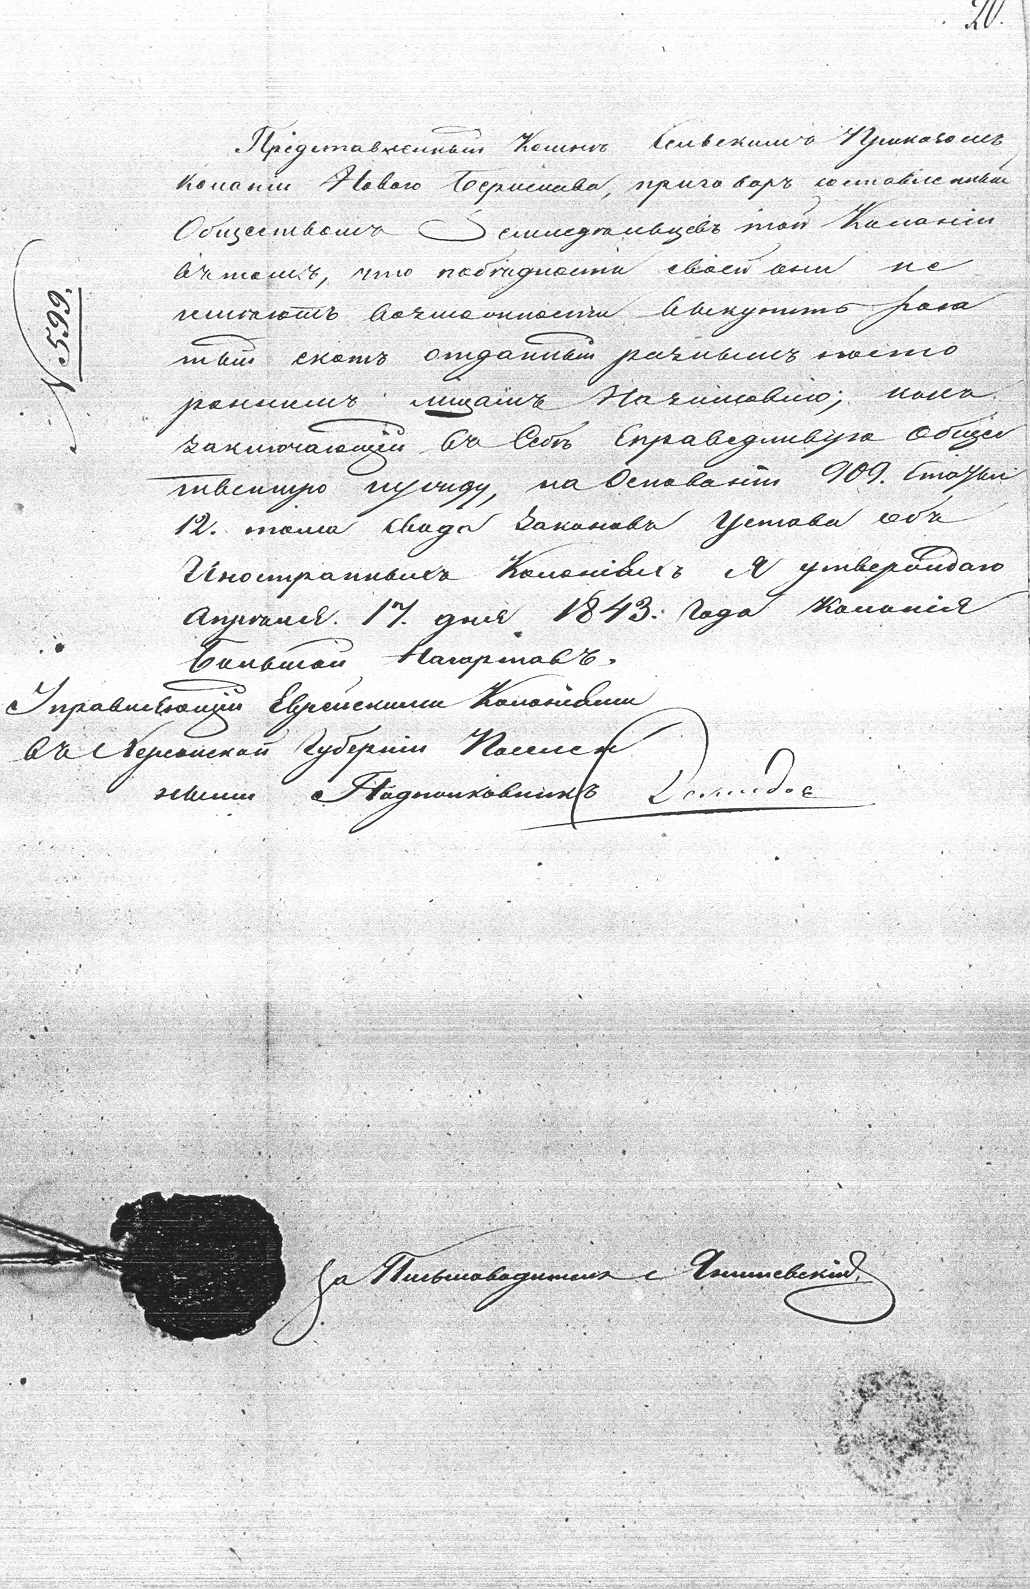 20.
Представленный Комнѣ Сельскимъ Приказомъ
Колоніи Новаго Берислава, приговоръ составленный
Обществомъ Земледѣльцевъ той Колоніи
вътомъ, что побѣдности своей они не
имѣютъ возможности выкупить рога
тый скотъ отданный разнымъ посто
роннимъ лицамъ
заключающій въ Себѣ Справедливую общес
твенную нужду, на Основаніи 909. Статьи
12. тома Свода Законовъ Устава объ
Иностранныхъ Колоніяхъ Я утверждаю
Апрѣля. 17. дня 1843: Года Колонія
Большой Нагартавъ.
Управляющій Еврейскими Колоніями
въ Херсонской Губерніи Поселен
ными Подполковникъ
N 599.
За Письмоводителя